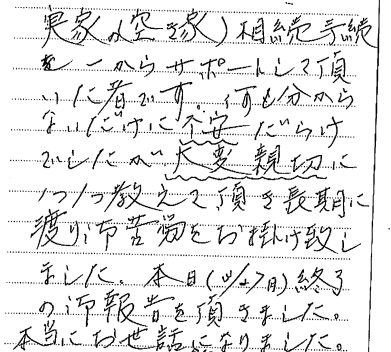 実家(空き家)相続手続
を一からサポートして頂
いた者です。何も分から
ないだけに不安だらけ
でしたが大変親切に
1つ1つ教えて頂き長期に
渡り御苦労をお掛け致し
ました。本日(11/27月)終了
の御報告を頂きました。
本当にお世話になりました。